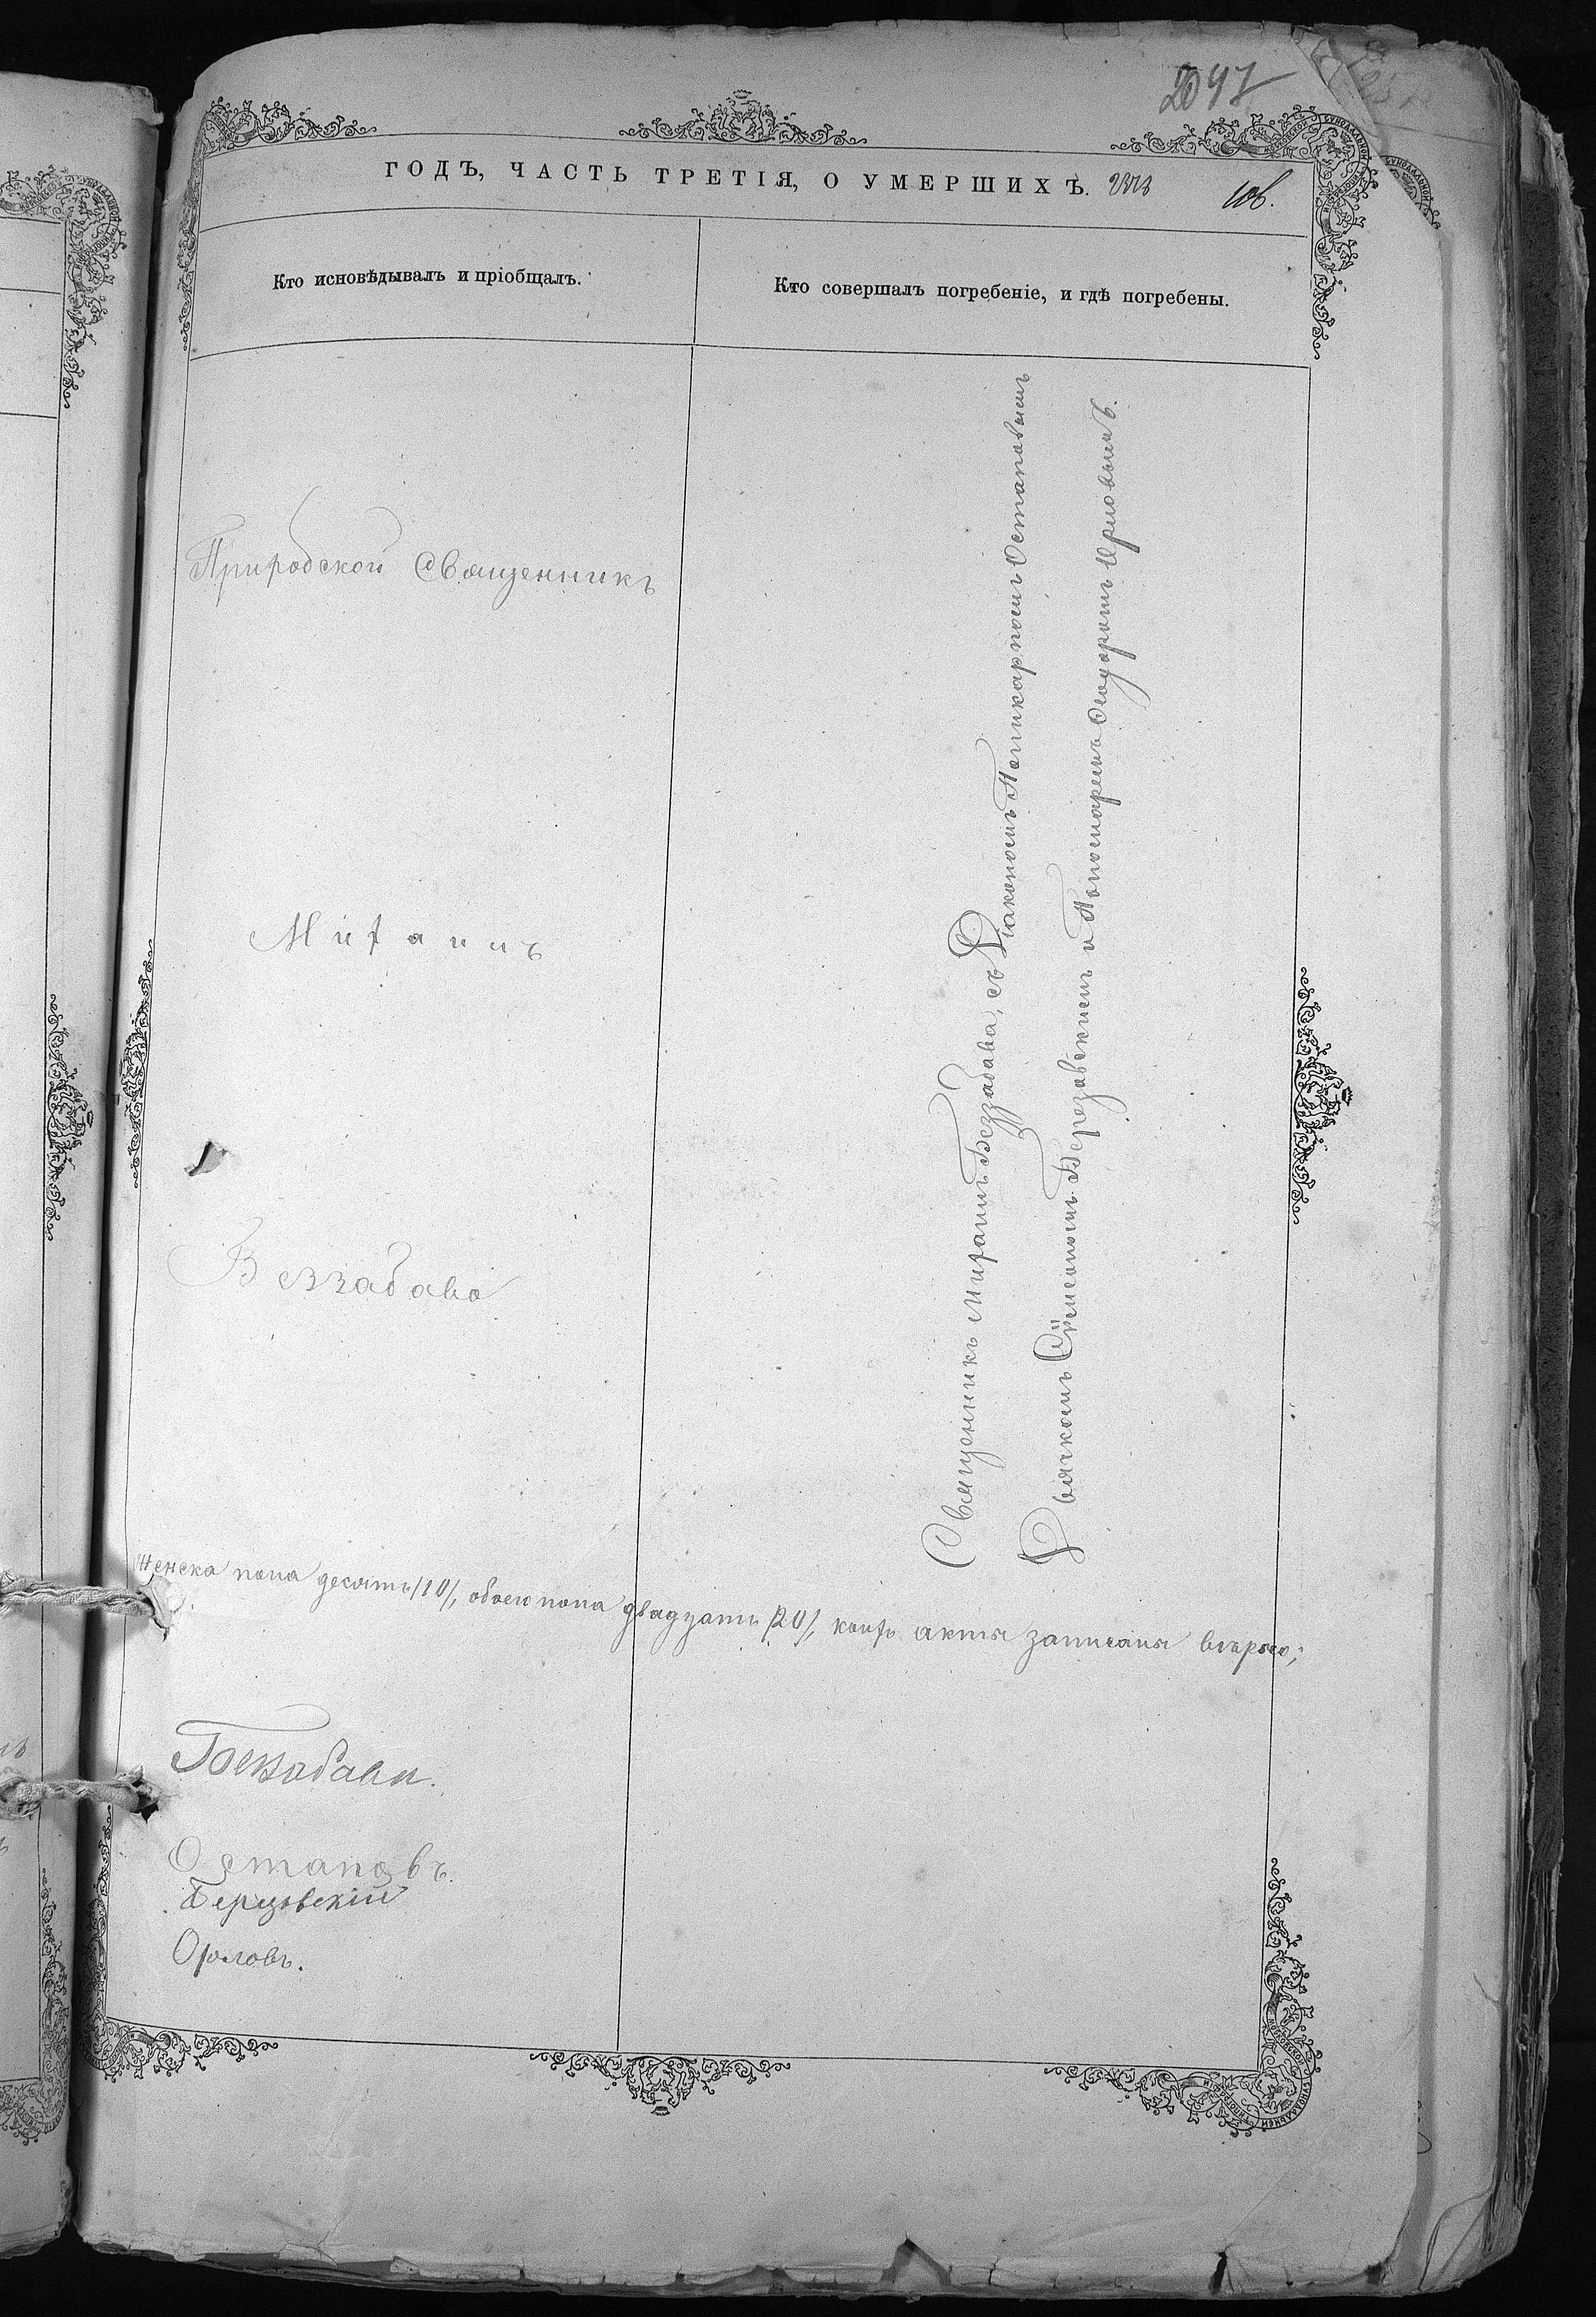 2097
ГОДЪ, ЧАСТЬ ТРЕТІЯ, О УМЕРШИХЪ.
Кто исповѣдывалъ и пріобщалъ.
Кто совершалъ погребеніе, и гдѣ погребены.
Священникъ
Миѳаилъ
Беззабава
Священникъ Миѳаилъ Беззабава, съ Діакономъ Поликарпомъ Остаповымъ
Дьячкомъ Сѵмеономъ Березовскимъ и Пономаремъ Ѳеодоромъ Орловымъ.
Женска пола десять /10/, обоего пола двадцать /20/, коиѳъ акты записаны вѣрно;
Беззабава.
Остаповъ.
Березовскій
Орловъ.